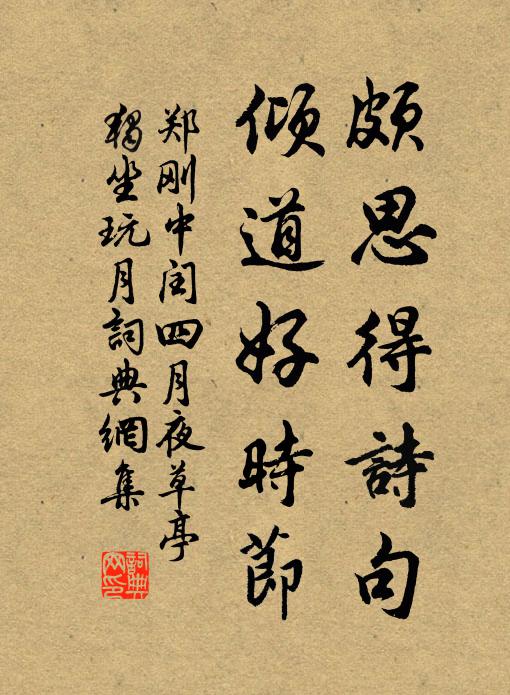 颇思得詩句
倾道好時節
郑刚中闰四月夜草亭
獨坐玩月詞典網集
詞典網印